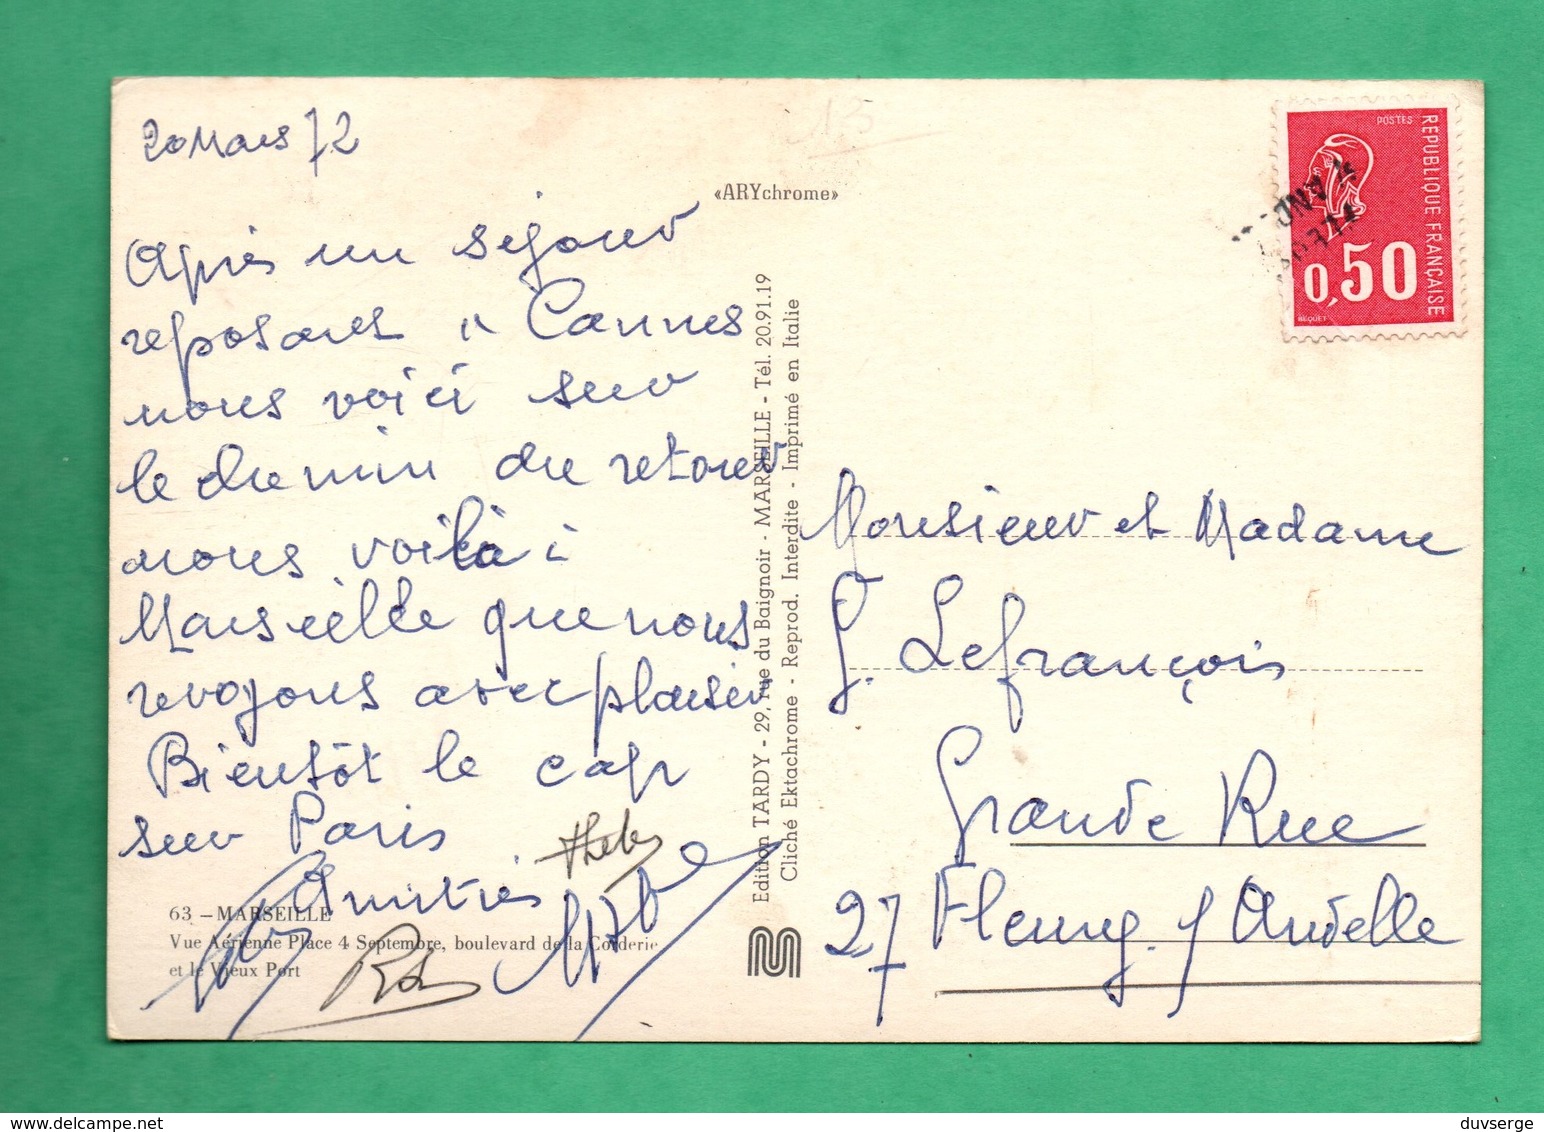 20 Mars 72
Après un séjour
reposant à Cannes
nous voici sur
le chemin du retour
nous voilà à
Marseille que nous
revoyons avec plaisir
Bientôt le cap
sur Paris
Amitiés
63 – MARSEILLE
Vue Aérienne Place 4 Septembre, boulevard de la Corderie
et le Vieux Port
«ARYchrome»
Edition TARDY - 29, rue du Baignoir - MARSEILLE - Tél. 20.91.19
Cliché Ektachrome - Reprod. Interdite - Imprimé en Italie
POSTES
REPUBLIQUE FRANÇAISE
0,50
BEQUET
Monsieur et Madame
G. Lefrançois
Grande Rue
27 Fleury s/ Andelle
duvserge